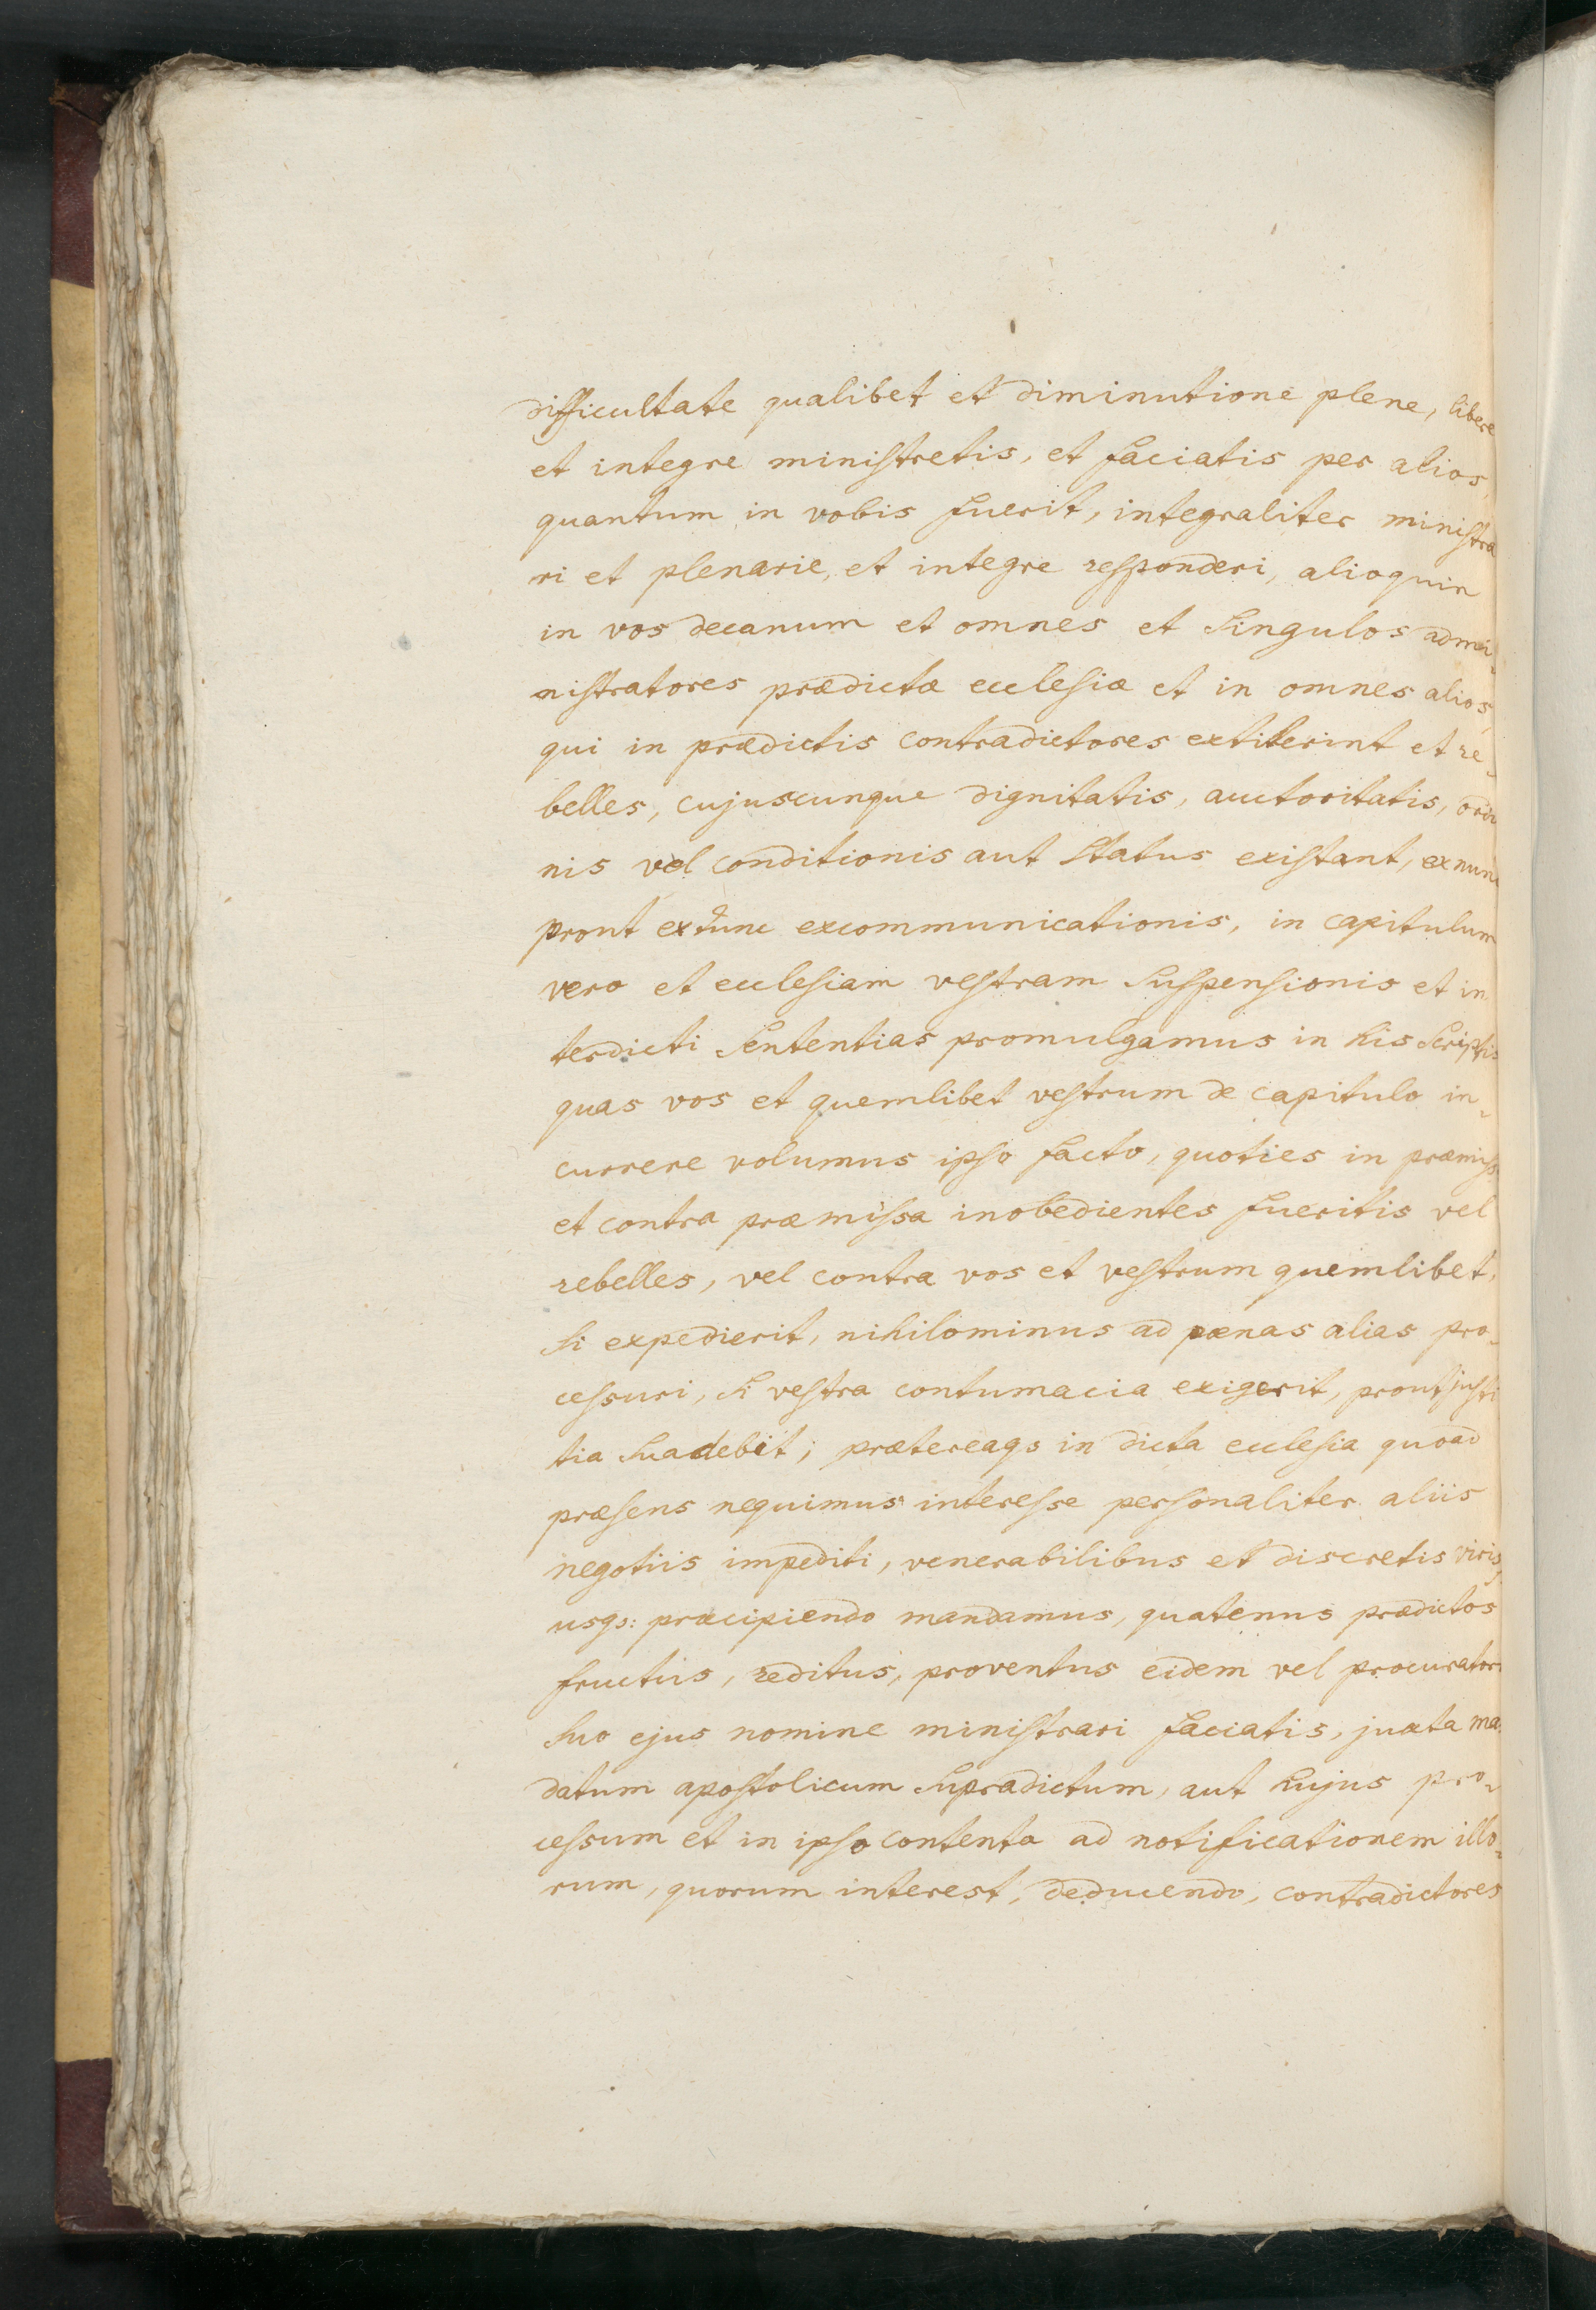 difficultate qualibet et diminutione plene, libere
et integre ministretis, et faciatis per alios,
quantum in vobis fuerit, integraliter ministra
ri et plenarie, et integre responderi, alioquin
in vos decanum et omnes et singulos admi-
nistratores prædictæ ecclesiæ et in omnes alios,
qui in prædictis contradictores extiterint et re-
belles, cujuscunque dignitatis, auctoritatis, ordi
nis vel conditionis aut status existant, ex nunc
prout ex tunc excommunicationis, in capitulum
vero et ecclesiam vestram suspensionis et in
terdicti sententias promulgamus in his scriptis
quas vos et quemlibet vestrum de capitulo in-
currere volumus ipso facto, quoties in præmiss
et contra præmissa inobedientes fueritis vel
rebelles, vel contra vos et vestrum quemlibet,
si expedierit, nihilominus ad pænas alias pro-
cessuri, si vestra contumacia exigerit, prout justi
tia suadebit; prætereaqs in dicta ecclesia quoad
præsens nequimus interesse personaliter aliis
negotiis impediti, venerabilibus et discretis viris,
usqs: præcipiendo mandamus, quatenus prædictos
fructus, reditus, proventus eidem vel procuratori
suo ejus nomine ministrari faciatis, juxta ma-
datum apostolicum supradictum, aut hujus pro-
cessum et in ipso contenta ad notificationem illo-
rum, quorum interest, deducendo, contradictores